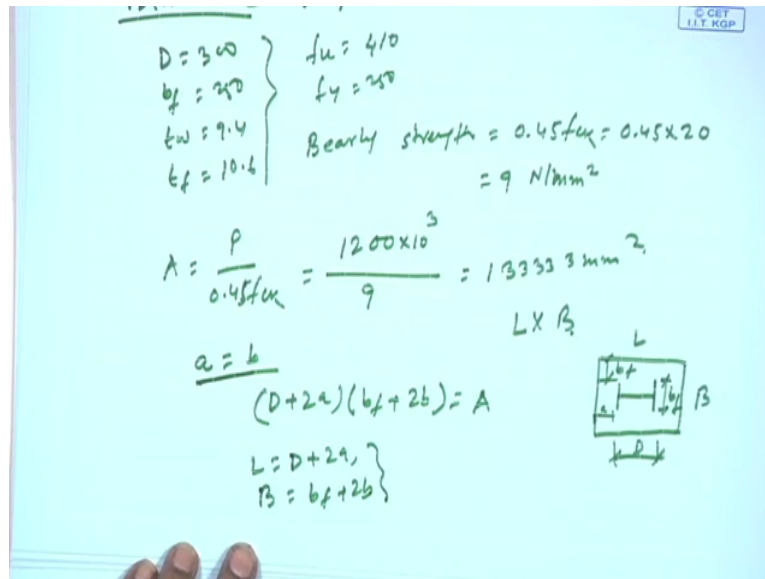 © CET
I.I.T. KGP
D = 300
bf = 250
tw = 9.4
tf = 10.6
fu = 410
fy = 250
Bearing strength = 0.45fck = 0.45×20
= 9 N/mm²
A = P / 0.45fck = 1200×10³ / 9 = 133333 mm²
L×B
a = b
(D+2a)(bf+2b) = A
L = D+2a,
B = bf+2b
L
b
bf
a
B
D